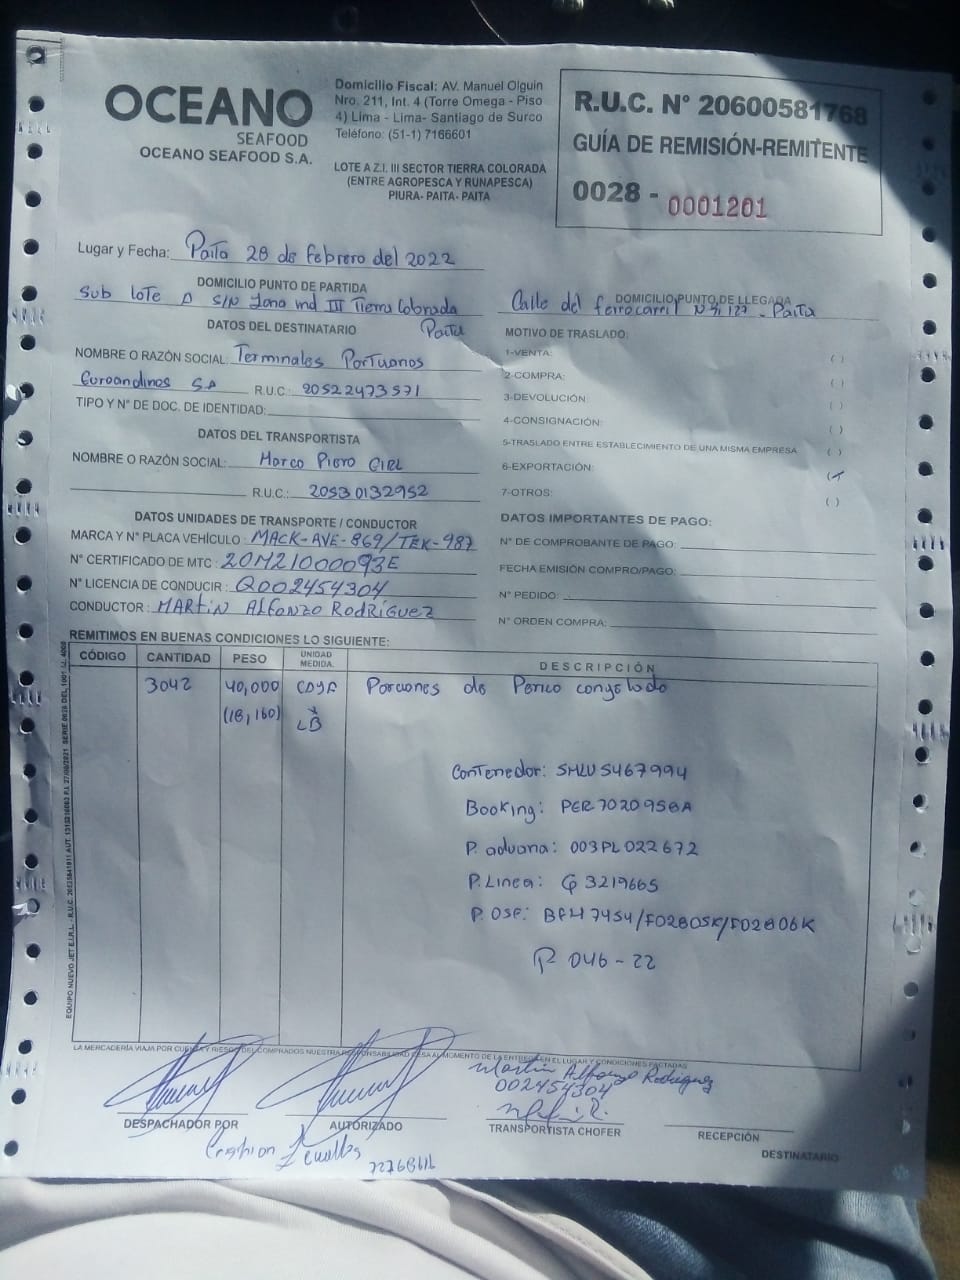 OCEANO
SEAFOOD
OCEANO SEAFOOD S.A.
Domicilio Fiscal: AV. Manuel Olguin
Nro. 211, Int. 4 (Torre Omega - Piso
4) Lima - Lima- Santiago de Surco
Teléfono: (51-1) 7166601
LOTE A Z.I. III SECTOR TIERRA COLORADA
(ENTRE AGROPESCA Y RUNAPESCA)
PIURA- PAITA- PAITA
R.U.C. N° 20600581768
GUÍA DE REMISIÓN-REMITENTE
0028 - 0001201
Lugar y Fecha: Paita 28 de Febrero del 2022
DOMICILIO PUNTO DE PARTIDA
Sub lote A S/N Zona ind III Tierra Colorada
Paita
DOMICILIO PUNTO DE LLEGADA
Calle del ferrocarril N° 127 - Paita
DATOS DEL DESTINATARIO
NOMBRE O RAZÓN SOCIAL: Terminales Portuarios
Euroandinos SA R.U.C.: 20522473571
TIPO Y N° DE DOC. DE IDENTIDAD:
DATOS DEL TRANSPORTISTA
NOMBRE O RAZÓN SOCIAL: Marco Piero EIRL
R.U.C.: 20530132952
MOTIVO DE TRASLADO:
1-VENTA: ( )
2-COMPRA: ( )
3-DEVOLUCIÓN: ( )
4-CONSIGNACIÓN: ( )
5-TRASLADO ENTRE ESTABLECIMIENTO DE UNA MISMA EMPRESA ( )
6-EXPORTACIÓN: (✓)
7-OTROS: ( )
DATOS UNIDADES DE TRANSPORTE / CONDUCTOR
MARCA Y N° PLACA VEHÍCULO : MACK-AVE-869/TEK-987
N° CERTIFICADO DE MTC : 20M21000093E
N° LICENCIA DE CONDUCIR : Q002454304
CONDUCTOR : MARTIN Alfonzo RodRíguez
DATOS IMPORTANTES DE PAGO:
N° DE COMPROBANTE DE PAGO:
FECHA EMISIÓN COMPRO/PAGO:
N° PEDIDO:
N° ORDEN COMPRA:
REMITIMOS EN BUENAS CONDICIONES LO SIGUIENTE:
CÓDIGO CANTIDAD PESO UNIDAD MEDIDA. DESCRIPCIÓN
3042 40,000 Porciones de Perico congelado
(18,160) LB
Contenedor: SMLU5467994
Booking: PER702095BA
P. aduana: 003PL022672
P. Linea: 3219665
P. OSF: BFH7454/F02805K/F02806K
046-22
LA MERCADERÍA VIAJA POR CUENTA Y RIESGO DEL COMPRADOS NUESTRA RESPONSABILIDAD CESA AL MOMENTO DE LA ENTREGA EN EL LUGAR Y CONDICIONES PACTADAS
Martin Alfonzo Rodriguez
002454304
DESPACHADOR POR
AUTORIZADO
TRANSPORTISTA CHOFER
RECEPCIÓN
DESTINATARIO